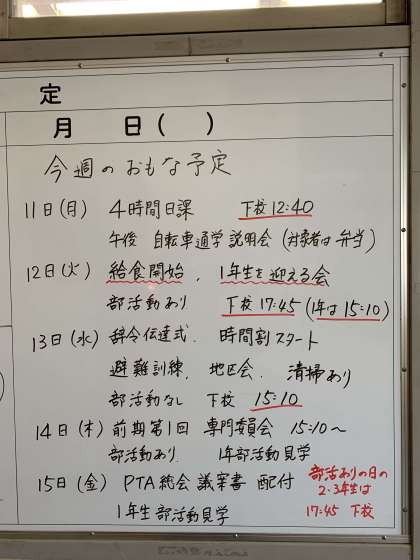 定
月 日( )
今週のおもな予定
11日(月) 4時間日課 下校12:40
午後 自転車通学説明会(対象者は弁当)
12日(火) 給食開始、1年生を迎える会
部活動あり 下校17:45(1年は15:10)
13日(水) 辞令伝達式、時間割スタート
避難訓練、地区会、清掃あり
部活動なし 下校 15:10
14日(木) 前期第1回 専門委員会 15:10〜
部活動あり 1年部活動見学
15日(金) PTA総会議案書 配付
1年生部活動見学
部活ありの日の
2・3年生は
17:45 下校